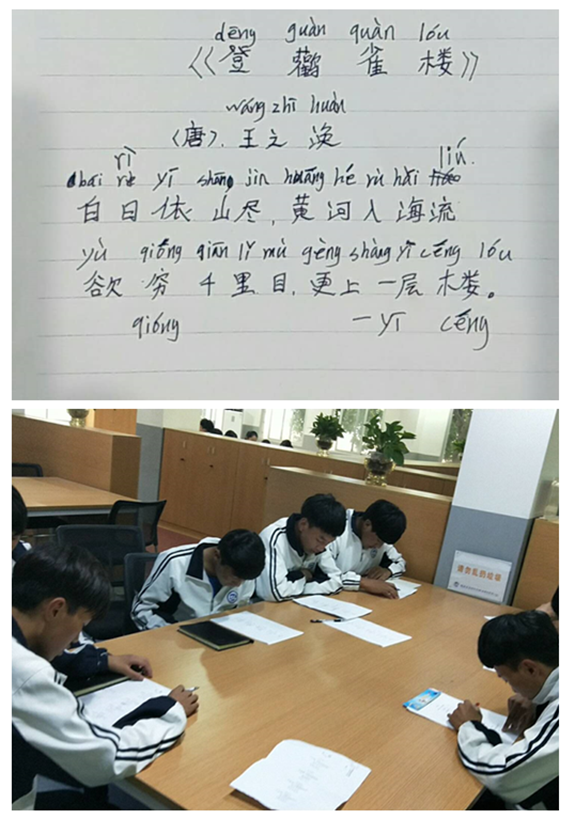 dēng guàn quàn lóu
《登鸛雀楼》
wáng zhī huàn
〈唐〉. 王之涣
rì liú.
bai yī shāng jìn huáng hé rù hǎi
白日依山尽,黄河入海流
yù qióng qiān lǐ mù gèng shàng yī céng lóu
欲穷千里目,更上一层楼。
qióng 一yī céng
请勿乱扔垃圾